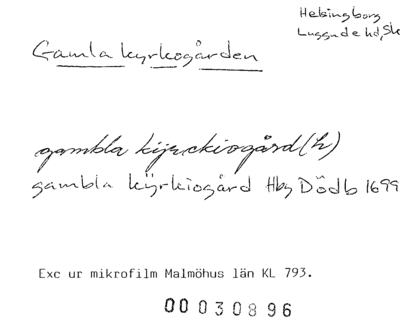 Helsingborg
Luggude hd, Sk
Gamla kyrkogården
gambla kijrckiogård(h)
gambla kÿrkiogård Hbg Dödb 1699
Exc ur mikrofilm Malmöhus län KL 793.
00030896